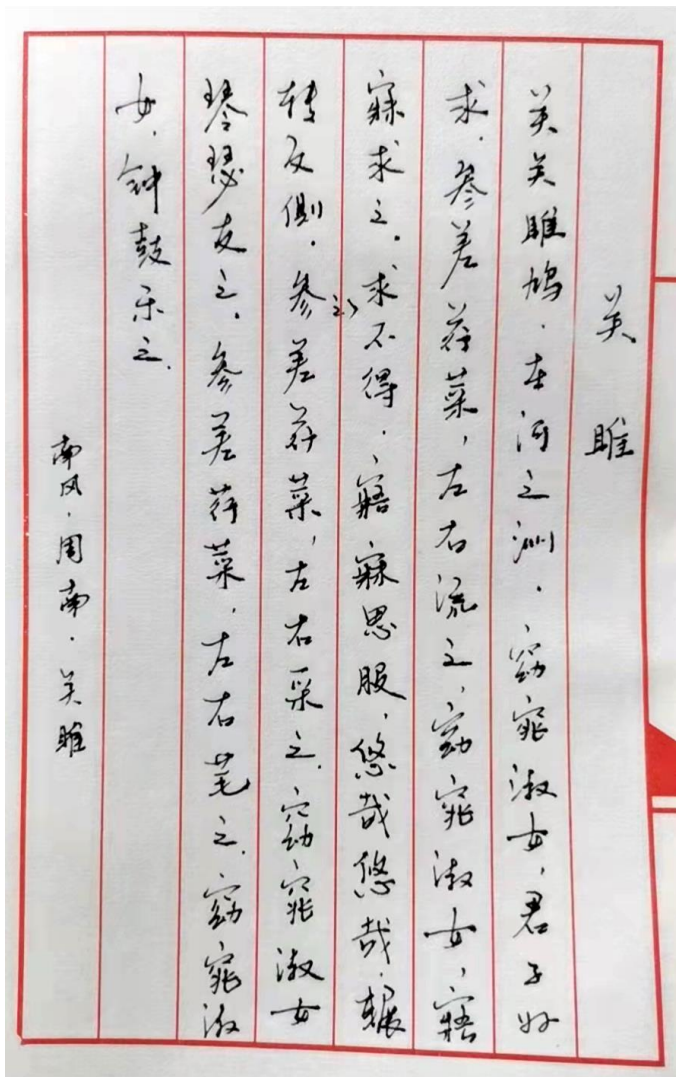 关雎
关关雎鸠．在河之洲．窈窕淑女，君子好
求．参差荇菜，左右流之，窈窕淑女，寤
寐求之．求之不得，寤寐思服，悠哉悠哉，辗
转反侧．参差荇菜，左右采之．窈窕淑女
琴瑟友之．参差荇菜，左右芼之．窈窕淑
女，钟鼓乐之．
南风．周南．关雎